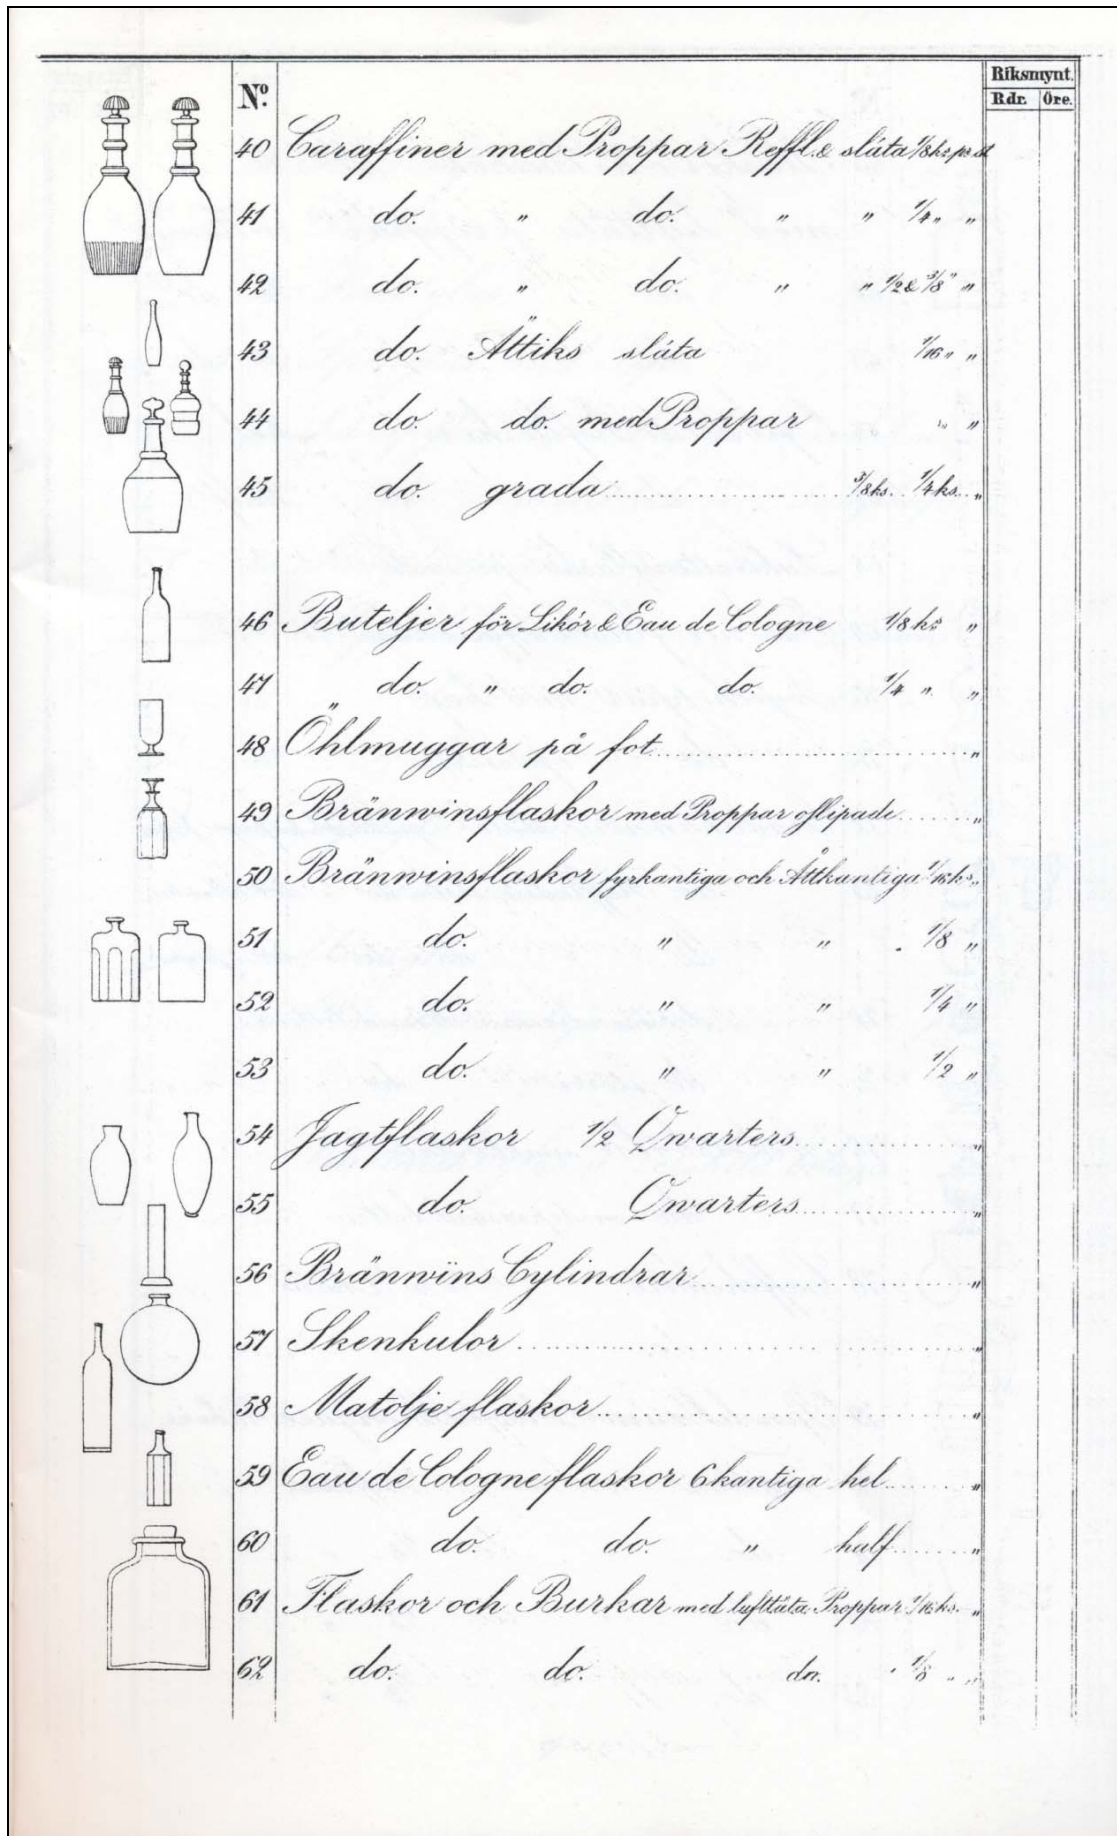 Nº Riksmynt.
Rdr. Öre.
40 Caraffiner med Proppar Reffl. & släta 1/8 ks. pr st
41 do. " do. " " 1/4 " "
42 do. " do. " " 1/2 & 3/8 " "
43 do. Ättiks släta 1/16 " "
44 do. do. med Proppar " "
45 do. grada 3/8 ks. 1/4 ks. "
46 Buteljer för Likör & Eau de Cologne 1/8 ks "
47 do. " do. do. 1/4 " "
48 Öhlmuggar på fot "
49 Bränwinsflaskor med Proppar oslipade "
50 Bränwinsflaskor fyrkantiga och Åttkantiga 1/16 ks. "
51 do. " " 1/8 "
52 do. " " 1/4 "
53 do. " " 1/2 "
54 Jagtflaskor 1/2 Qwarters "
55 do. Qwarters "
56 Bränwins Cylindrar "
57 Skenkulor "
58 Matolje flaskor "
59 Eau de Cologne flaskor 6 kantiga hel "
60 do. do. " half "
61 Flaskor och Burkar med lufttäta Proppar 1/16 ks. "
62 do. do. do. 1/8 " "